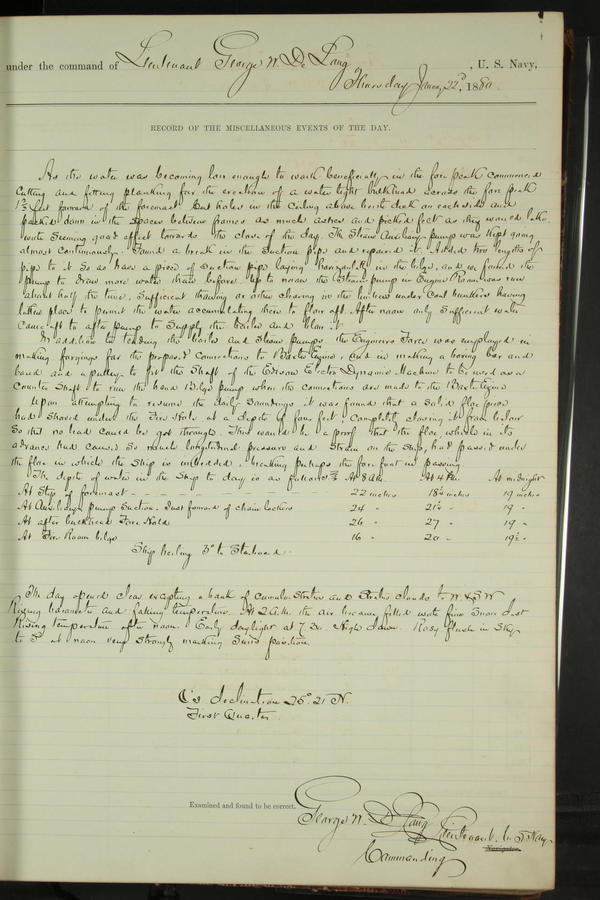 under the command of Lieutenant George W. De Long, U. S. Navy,
Thursday January 22d, 1880.
RECORD OF THE MISCELLANEOUS EVENTS OF THE DAY.
As the water was becoming low enough to work beneficially in the fore peak commenced
cutting and fitting planking for the erection of a water tight bulkhead across the fore peak
feet forward of the foremast. Cut holes in the ceiling above berth deck on each side and
packed down in the spaces between frames as much ashes and picked felt as they would take,
with seeming good effect towards the close of the day. The Steam Auxiliary pump was kept going
almost continuously. Found a break in the suction pipe and repaired it. Added two lengths of
pipe to it so as have a piece of suction pipe laying horizontally in the bilge, and so forced the
pump to draw more water than before. Up to noon the Steam pump in Engine Room was run
about half the time, sufficient thawing or other clearing in the limbers under Coal bunkers having
taken place to permit the water accumulating there to flow aft. After noon only sufficient water
came aft to after pump to supply the boiler and blow it.
In addition to tending the boiler and steam pumps the Engineers Force was employed in
making forgings for the proposed connections to Baxter Engine, and in making a boring bar and
band and a pulley to fit the shaft of the Edison Electro Dynamic Machine to be used as a
counter shaft to run the hand Bilge pump when the connections are made to the Baxter Engine
Upon attempting to resume the daily soundings it was found that a solid floe piece
had shoved under the Fire Hole at a depth of four feet, completely closing it from below
So that no lead could be got through. This would be a proof that the floe, which in its
advance had caused so much longitudinal pressure and strain on the ship, had passed under
the floe in which the ship is imbedded, breaking perhaps the fore foot in passing
The depth of water in the Ship to day is as follows: At 8 AM. At 4 P.M. At midnight
At Step of foremast - - - - 22 inches 18½ inches 19 inches
At Auxiliary pump Suction, Just forward of chain lockers 24 " 21½ " 19 "
At after bulkhead Fore Hold 26 " 27 " 19 "
At Fire Room bilge 16 " 20 " 19½ "
Ship heeling 3° to Starboard.
The day opened clear excepting a bank of cumulo stratus and Stratus clouds to W & SW
Rising barometer and falling temperature. At 2 A.M. the air became filled with fine snow dust
Rising temperature after noon. Early daylight at 7.20. High dawn. Rosy flush in sky
to S at noon very strongly marking Suns position.
☾'s declination 25° 21 N.
First Quarter
Examined and found to be correct.
George W. De Long Lieutenant, U. S. Navy
Navigator.
Commanding